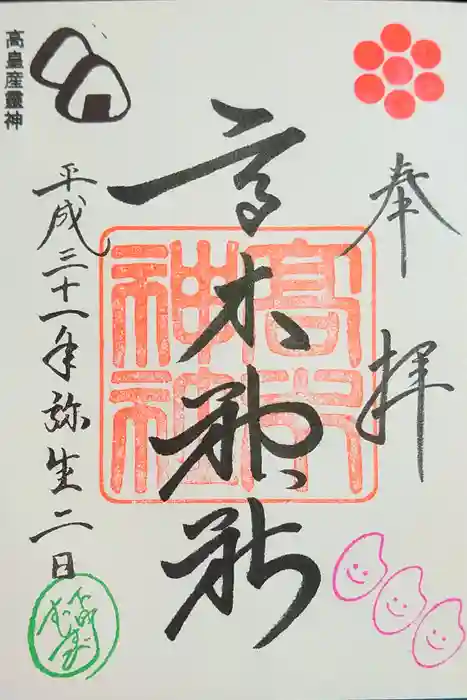 奉拝
高木神社
高木神社
高皇産靈神
平成三十一年弥生二日